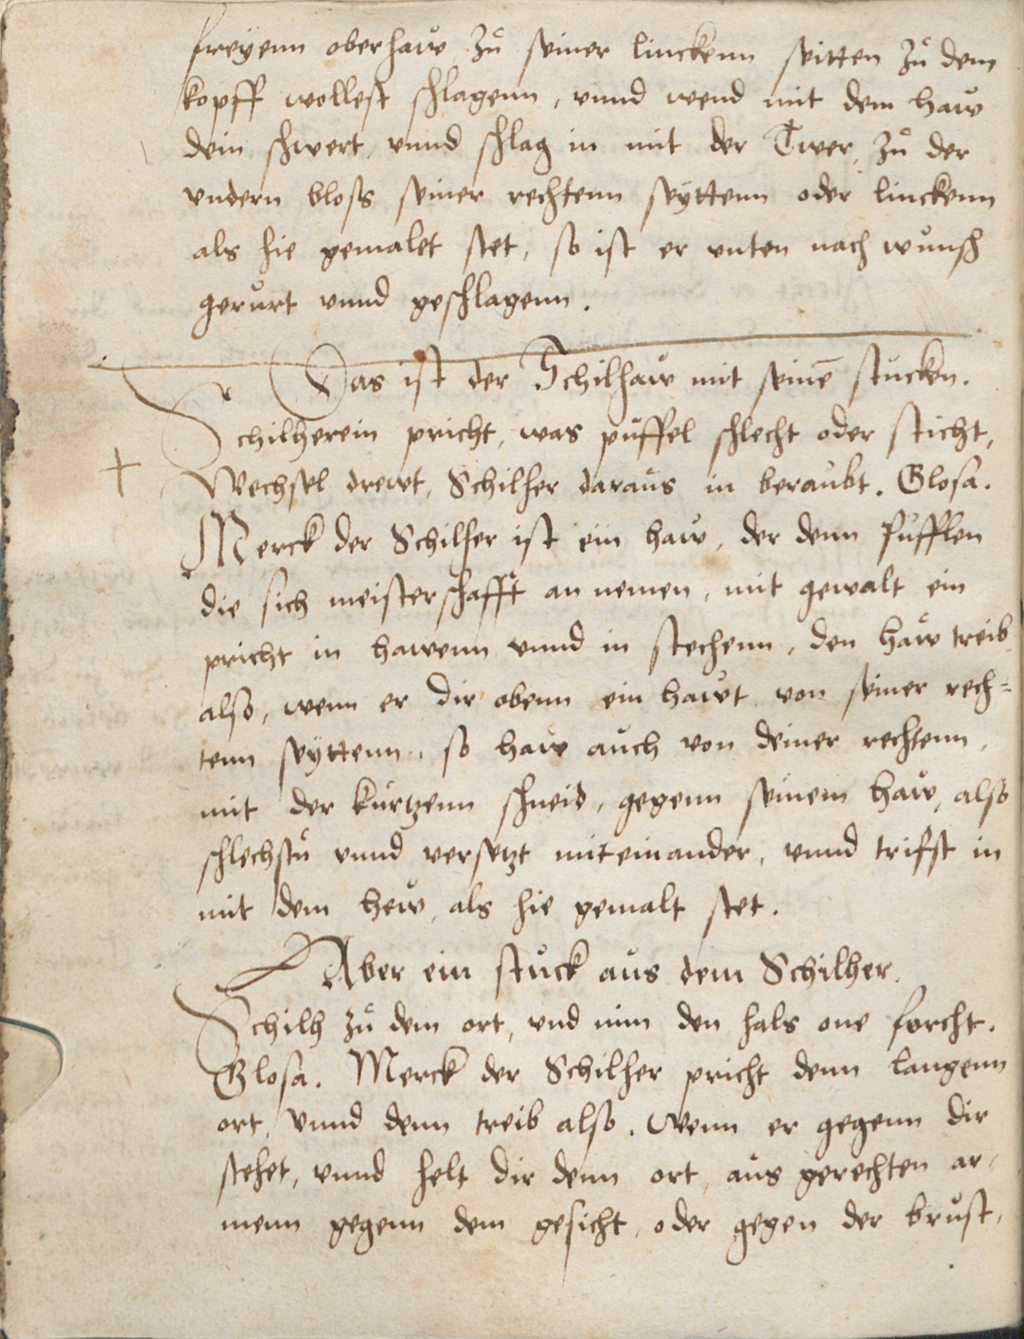 freyenn oberhaw zů seiner linckenn seitten zů dem
kopff wollest schlagenn, vnnd wend mit dem haw
dein schwert, vnnd schlag in mit der Twer, zů der
vndern bloss seiner rechtenn seyttenn oder linckenn
als hie gemalet stet, so ist er vnten nach wůnsch
gerůrt vnnd geschlagenn.
Das ist der Schilhaw mit seinē stucken.
Schilherein pricht, was půffel schlecht oder sticht,
Wechsel drewt, Schilher daraus in beraubt. Glosa.
Merck der Schilher ist ein haw, der denn půfflen
die sich meisterschafft an nemen, mit gewalt ein
pricht in hawenn vnnd in stechenn, den haw treib
also, wenn er dir obenn ein hawt von seiner rech-
tenn seyttenn, so haw auch von deiner rechtenn,
mit der kurtzenn schneid, gegenn seinem haw, also
schlechstů vnnd versetzt miteinander, vnnd trifst in
mit dem hew, als hie gemalt stet.
Aber ein stuck aus dem Schilher.
Schilh zů dem ort, vnd nim den hals one forcht.
Glosa. Merck der Schilher pricht denn langenn
ort, vnnd denn treib also. Wenn er gegenn dir
stehet, vnnd helt dir denn ort, aus gerechten ar-
menn gegenn dem gesicht, oder gegen der brůst,